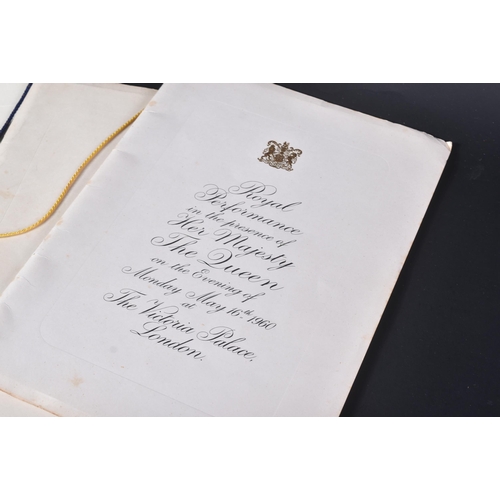 Royal
Performance
in the presence of
Her Majesty
The Queen
on the Evening of
Monday May 16th 1960
at
The Victoria Palace,
London.